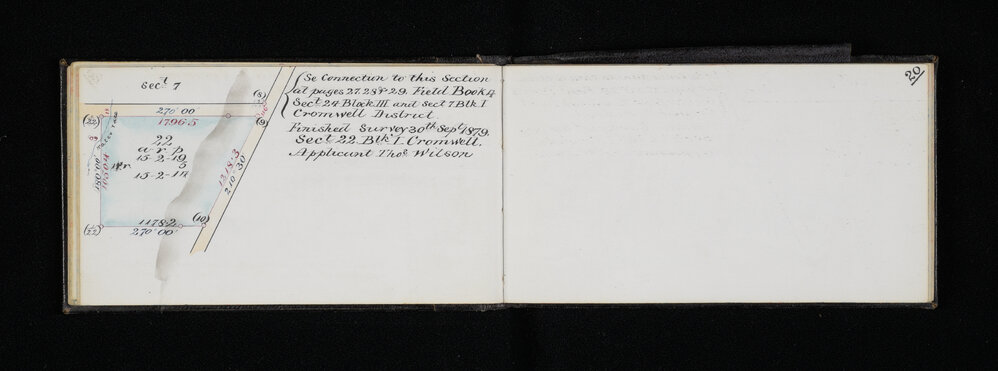 Sect 7
(8)
270° 00'
1796.5
(9)
22
a - r - p
15-2-19
5
15-2-14
180° 00'
1050.4
Water Race
1318.3
210° 30'
(10)
1178.2
270° 00'
Se Connection to this Section
at pages 27. 28 & 29. Field Book 4
Sect 24 Block III and Sect 7 Blk I
Cromwell District.
Finished Survey 30th Sept 1879.
Sect 22 Blk I Cromwell.
Applicant Thos Wilson
20